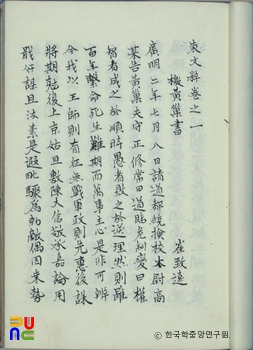 東文粹卷之一
檄黃巢書
崔致遠
廣明二年七月八日諸道都統檢校太尉高
某告黃巢夫守正修常曰道臨危制變曰權
智者成之於順時愚者敗之於逆理然則雖
百年繫命死生難期而萬事主心是非可辨
今我以王師則有征無戰軍政則先惠後誅
將期尅復上京姑且敷陳大信敬承嘉諭用
戢奸謀且汝素是遐甿驟爲勍敵偶因乘勢
ⓒ 한국학중앙연구원